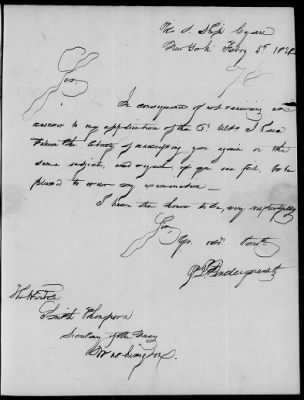 U S Ship Cyane
New York Feby 5th
Sir,
In consequence of not receiving an
answer to my application of the 5th I
the liberty of addressing you again on the
same subject, and again if you see fit, to be
pleased to renew my
I have the honor to be, very respectfully
Sir,
Yr. obt. Servt
G. J. Pendergrast
Smith Thompson
Secretary of the Navy
Washington